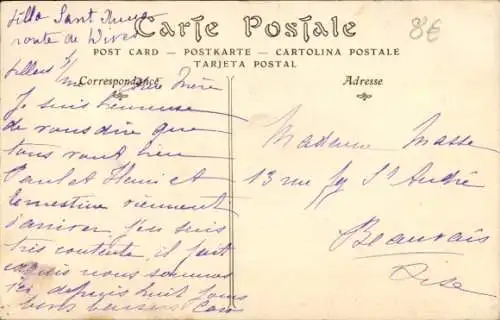 Villa Sant
route de
8€
Carte Postale
POST CARD — POSTKARTE — CARTOLINA POSTALE
TARJETA POSTAL
Correspondance
Adresse
Chère Mère
Je suis heureuse
de vous dire que
tous vont bien
Paul et Henri et
Ernestine viennent
d'arriver. J'en suis
très contente, il fait
nous sommes
ici depuis huit jours
bons baisers
Madame Masse
13 rue fg St André
Beauvais
Oise